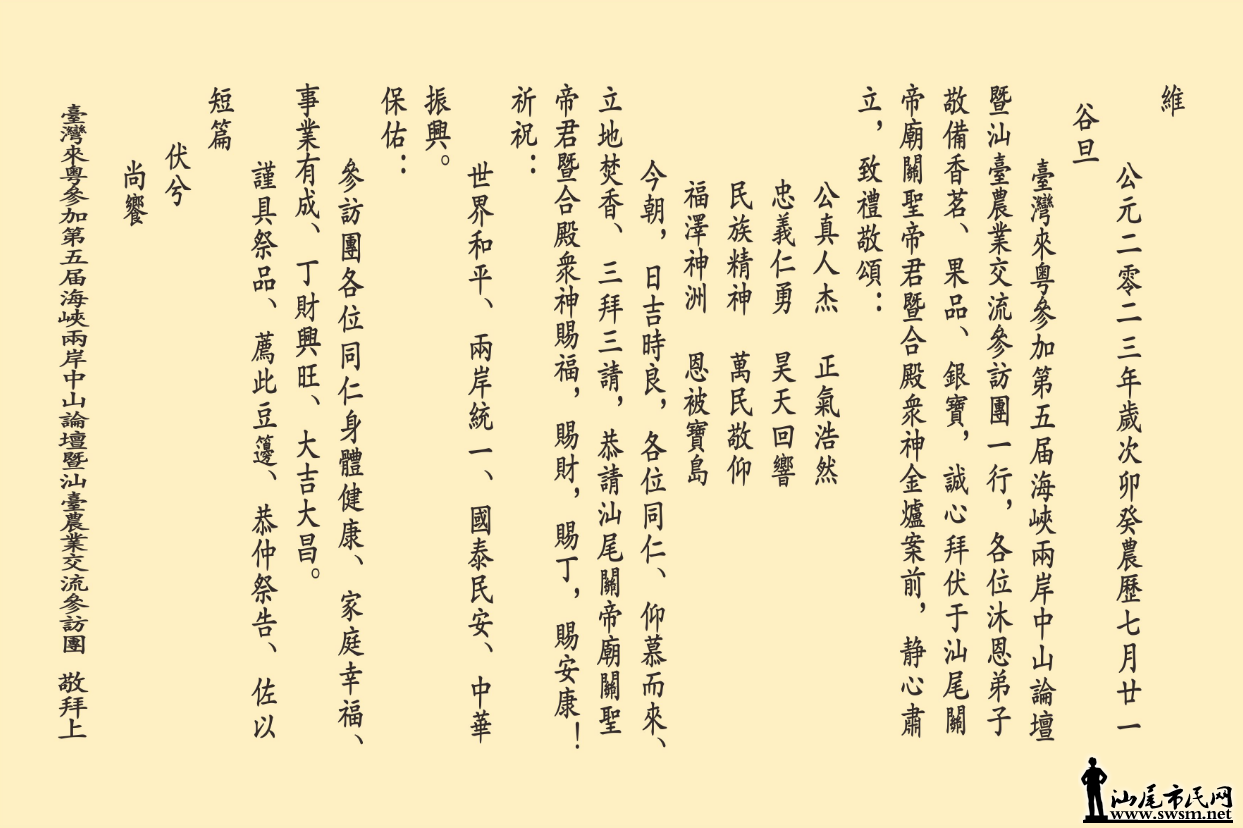 維
公元二零二三年歲次卯癸農歷七月廿一
谷旦
臺灣來粤參加第五届海峽兩岸中山論壇
暨汕臺農業交流參訪團一行，各位沐恩弟子
敬備香茗、果品、銀寶，誠心拜伏于汕尾關
帝廟關聖帝君暨合殿衆神金爐案前，静心肅
立，致禮敬頌：
公真人杰　正氣浩然
忠義仁勇　昊天回響
民族精神　萬民敬仰
福澤神洲　恩被寶島
今朝，日吉時良，各位同仁、仰慕而來、
立地焚香、三拜三請，恭請汕尾關帝廟關聖
帝君暨合殿衆神賜福，賜財，賜丁，賜安康！
祈祝：
世界和平、兩岸統一、國泰民安、中華
振興。
保佑：
參訪團各位同仁身體健康、家庭幸福、
事業有成、丁財興旺、大吉大昌。
謹具祭品、薦此豆籩、恭仲祭告、佐以
短篇
伏兮
尚饗
臺灣來粤參加第五届海峽兩岸中山論壇暨汕臺農業交流參訪團　敬拜上
汕尾市民网
www.swsm.net